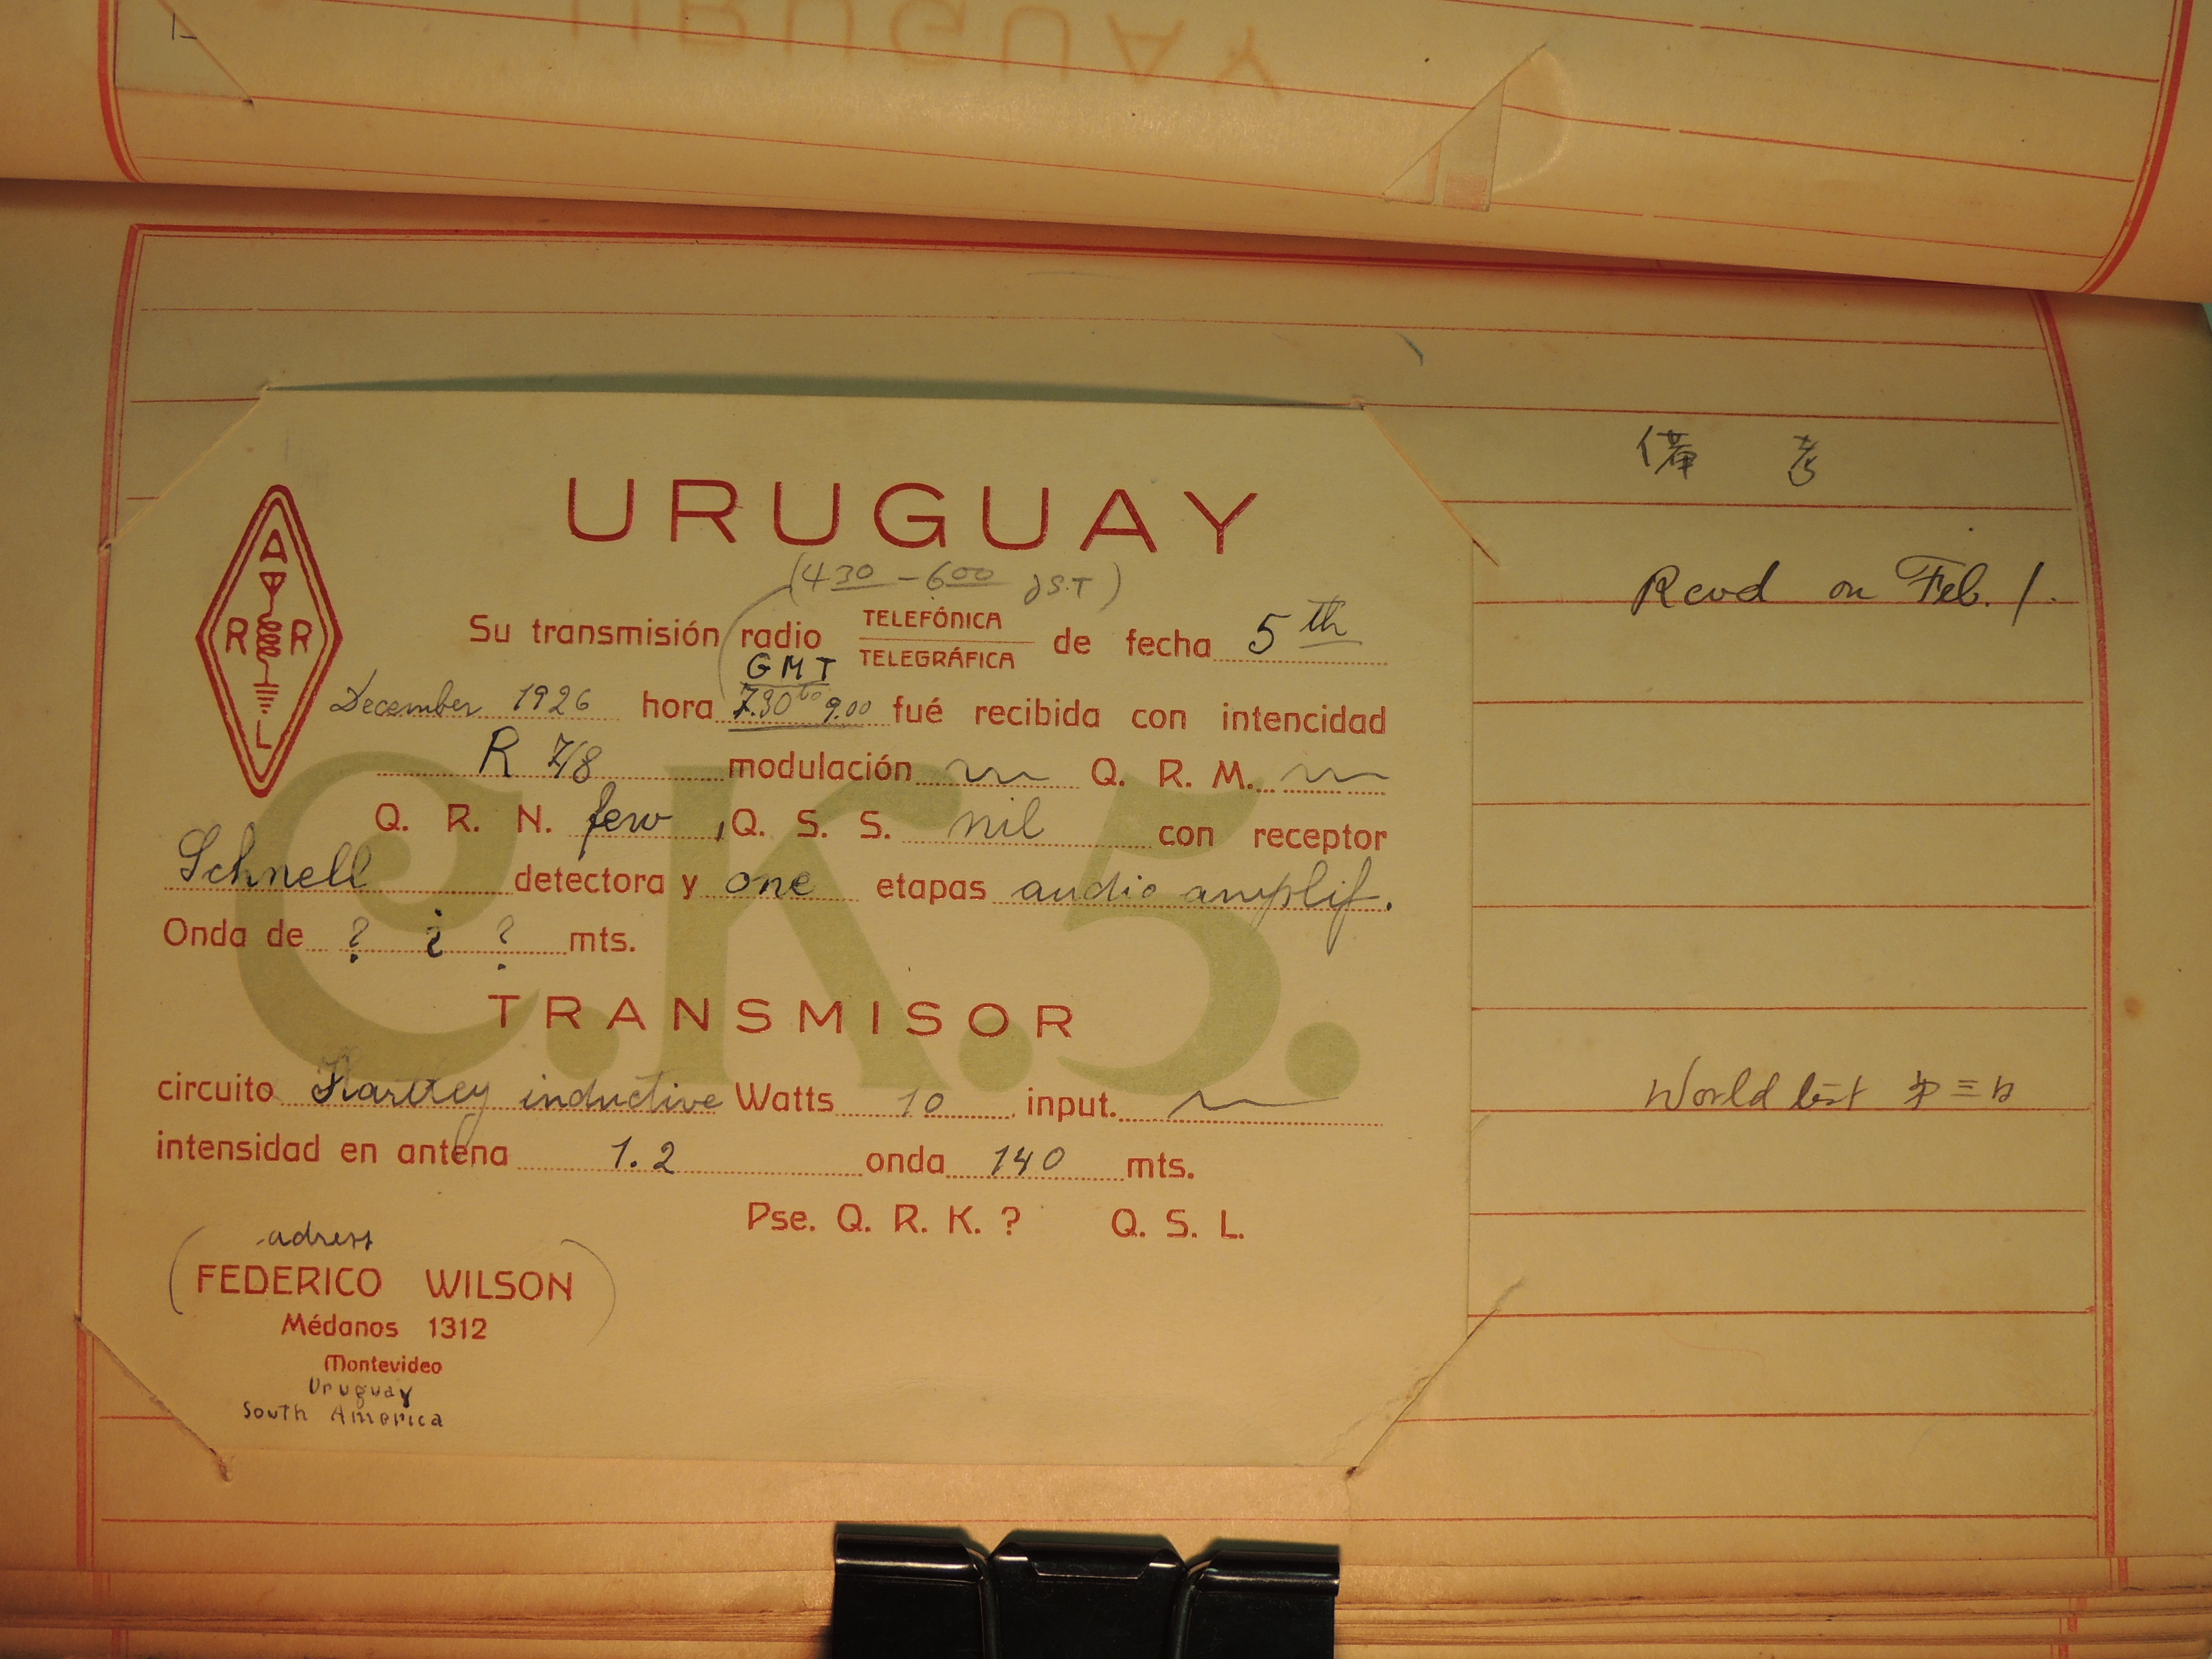 URUGUAY
URUGUAY
A
R R
L
C.K.5.
(4 30 – 6 00 J.S.T)
Su transmisión radio TELEFÓNICA de fecha 5 th
TELEGRÁFICA
GMT
December 1926 hora 7.30 to 9.00 fué recibida con intencidad
R 7/8 modulación Q. R. M.
Q. R. N. few , Q. S. S. nil con receptor
Schnell detectora y one etapas audio amplif.
Onda de ? ¿ ? mts.
TRANSMISOR
circuito Hartley inductive Watts 10 input.
intensidad en antena 1.2 onda 140 mts.
Pse. Q. R. K. ? Q. S. L.
(adress
FEDERICO WILSON)
Médanos 1312
Montevideo
Uruguay
South America
備考
Rcvd on Feb. 1.
World list